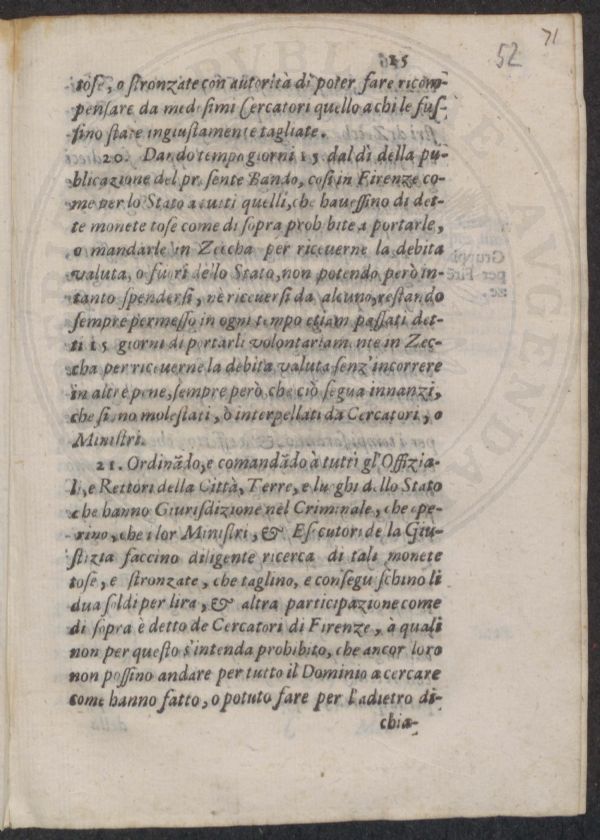 71
52
25
tose, o stronzate con autorità di poter fare ricom-
pensare da medesimi Cercatori quello a chi le fus-
sino state ingiustamente tagliate.
20. Dando tempo giorni 15 dal dì della pu-
blicazione del presente Bando, così in Firenze co-
me per lo Stato a tutti quelli, che havessino di det-
te monete tose come di sopra prohibite a portarle,
o mandarle in Zeccha per riceuerne la debita
valuta, o fuori dello Stato, non potendo però in-
tanto spendersi, ne riceuersi da alcuno, restando
sempre permesso in ogni tempo etiam passati det-
ti 15 giorni di portarli volontariamente in Zec-
cha per riceuerne la debita valuta senz'incorrere
in altre pene, sempre però che ciò segua innanzi,
che sieno molestati, ò interpellati da Cercatori, o
Ministri.
21. Ordinãdo, e comandãdo à tutti gl'Offizia-
li, e Rettori della Città, Terre, e luoghi dello Stato
che hanno Giurisdizione nel Criminale, che ope-
rino, che i lor Ministri, & Esecutori de la Giu-
stizia faccino diligente ricerca di tali monete
tose, e stronzate, che taglino, e conseguischino li
dua soldi per lira, & altra participazione come
di sopra è detto de Cercatori di Firenze, à quali
non per questo s'intenda prohibito, che ancor loro
non possino andare per tutto il Dominio a cercare
come hanno fatto, o potuto fare per l'adietro di-
chia-